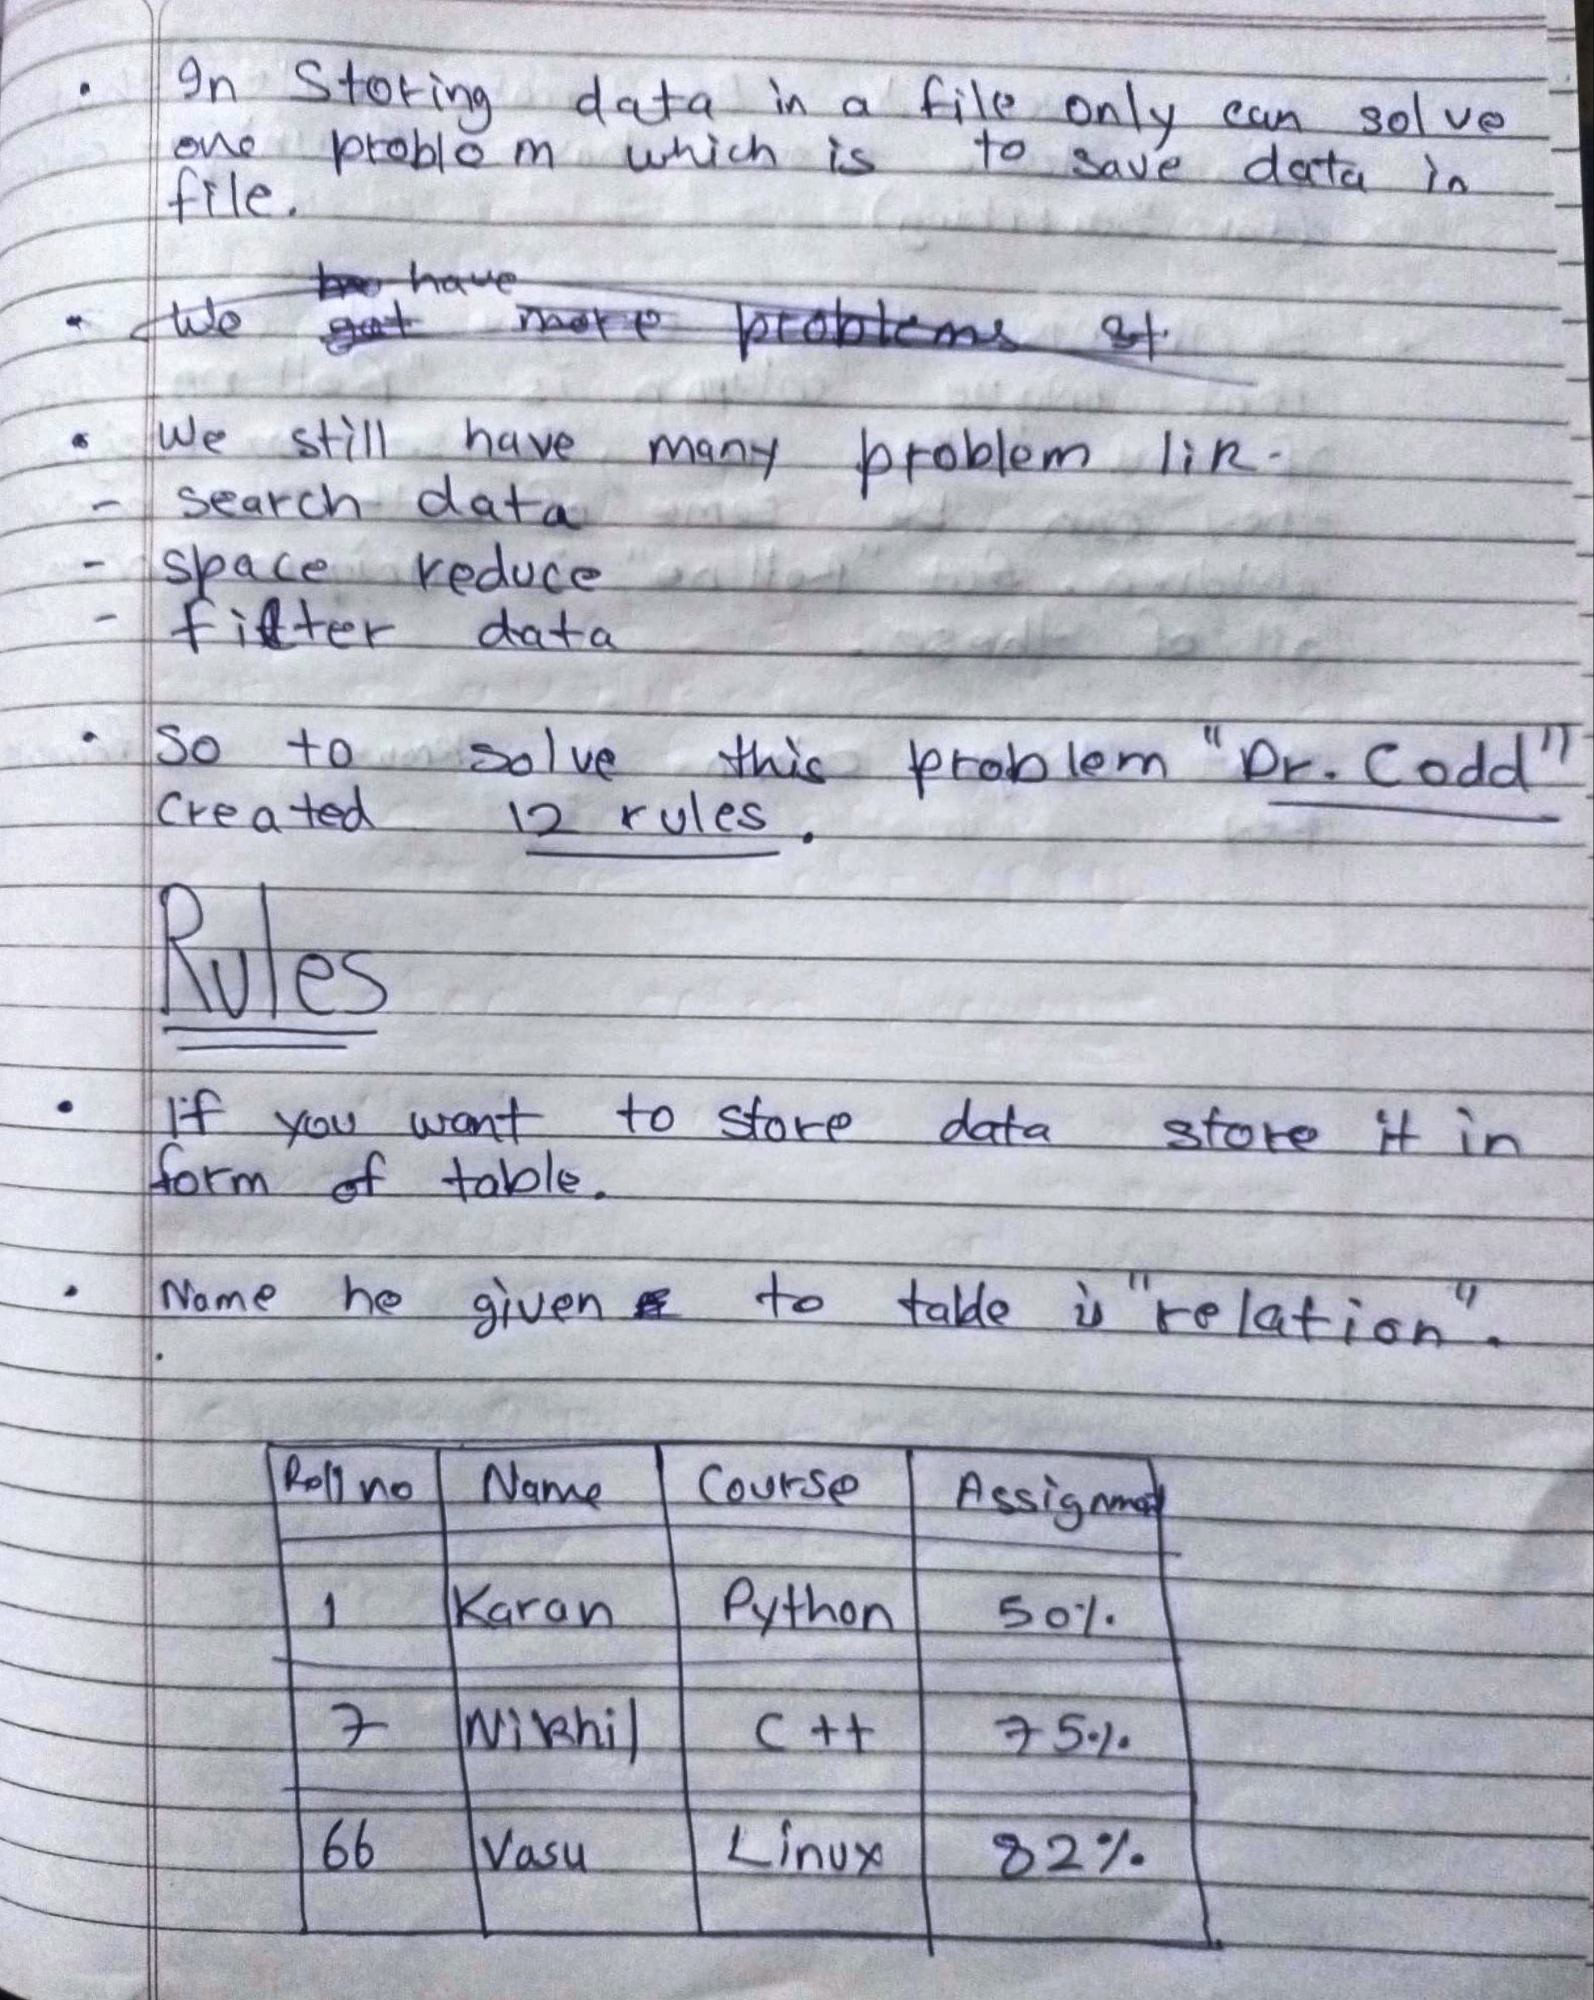 In Storing data in a file only can solve
one problem which is to save data in
file.
have
We got more problems st
We still have many problem lik-
- search data
- space reduce
- filter data
So to solve this problem "Dr. Codd"
created 12 rules.
Rules
If you want to store data store it in
form of table.
Name he given to table is "relation".
Roll no Name Course Assignment
1 Karan Python 50%
7 Nikhil C++ 75%
66 Vasu Linux 82%